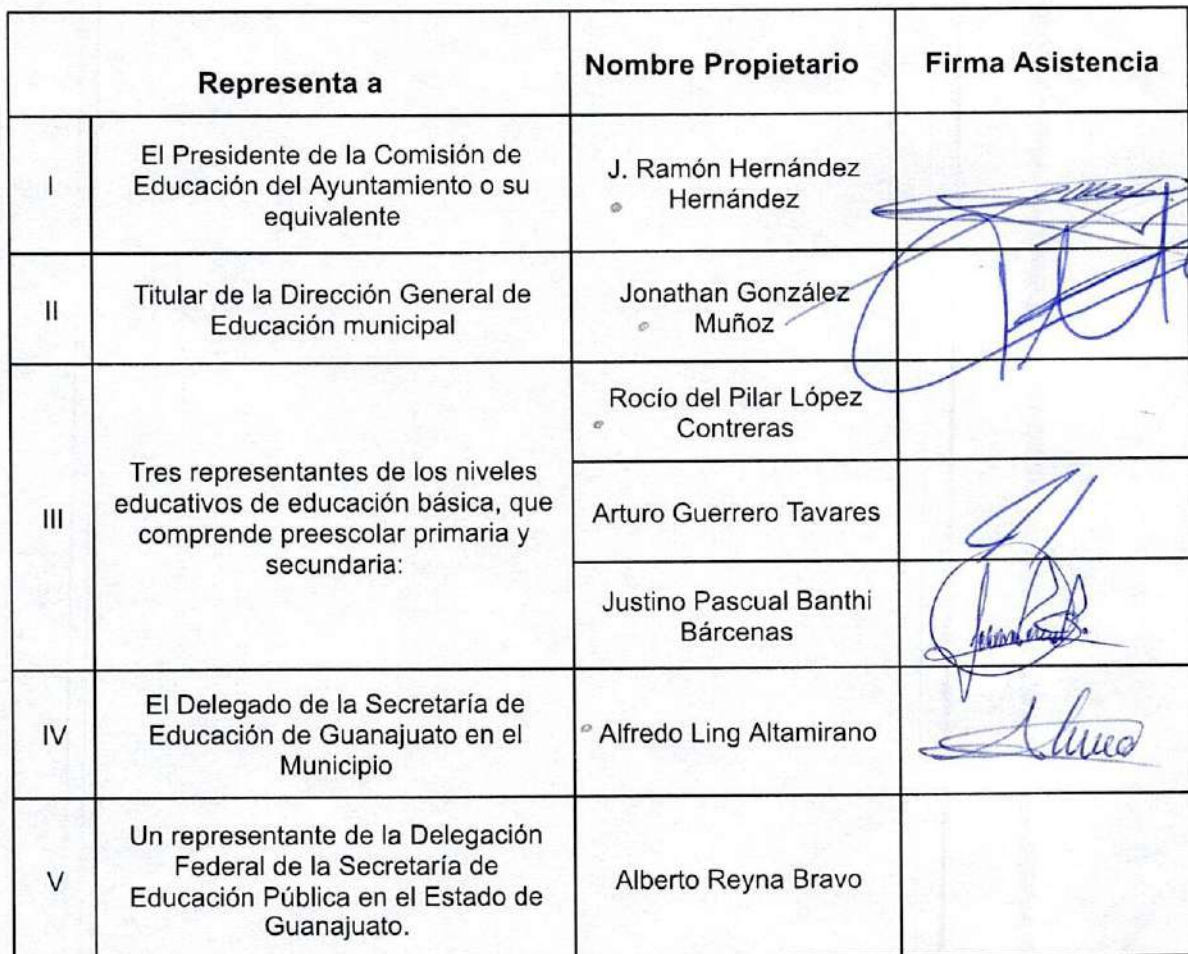 Representa a
Nombre Propietario
Firma Asistencia
I
El Presidente de la Comisión de
Educación del Ayuntamiento o su
equivalente
J. Ramón Hernández
Hernández
II
Titular de la Dirección General de
Educación municipal
Jonathan González
Muñoz
III
Tres representantes de los niveles
educativos de educación básica, que
comprende preescolar primaria y
secundaria:
Rocío del Pilar López
Contreras
Arturo Guerrero Tavares
Justino Pascual Banthi
Bárcenas
IV
El Delegado de la Secretaría de
Educación de Guanajuato en el
Municipio
Alfredo Ling Altamirano
V
Un representante de la Delegación
Federal de la Secretaría de
Educación Pública en el Estado de
Guanajuato.
Alberto Reyna Bravo